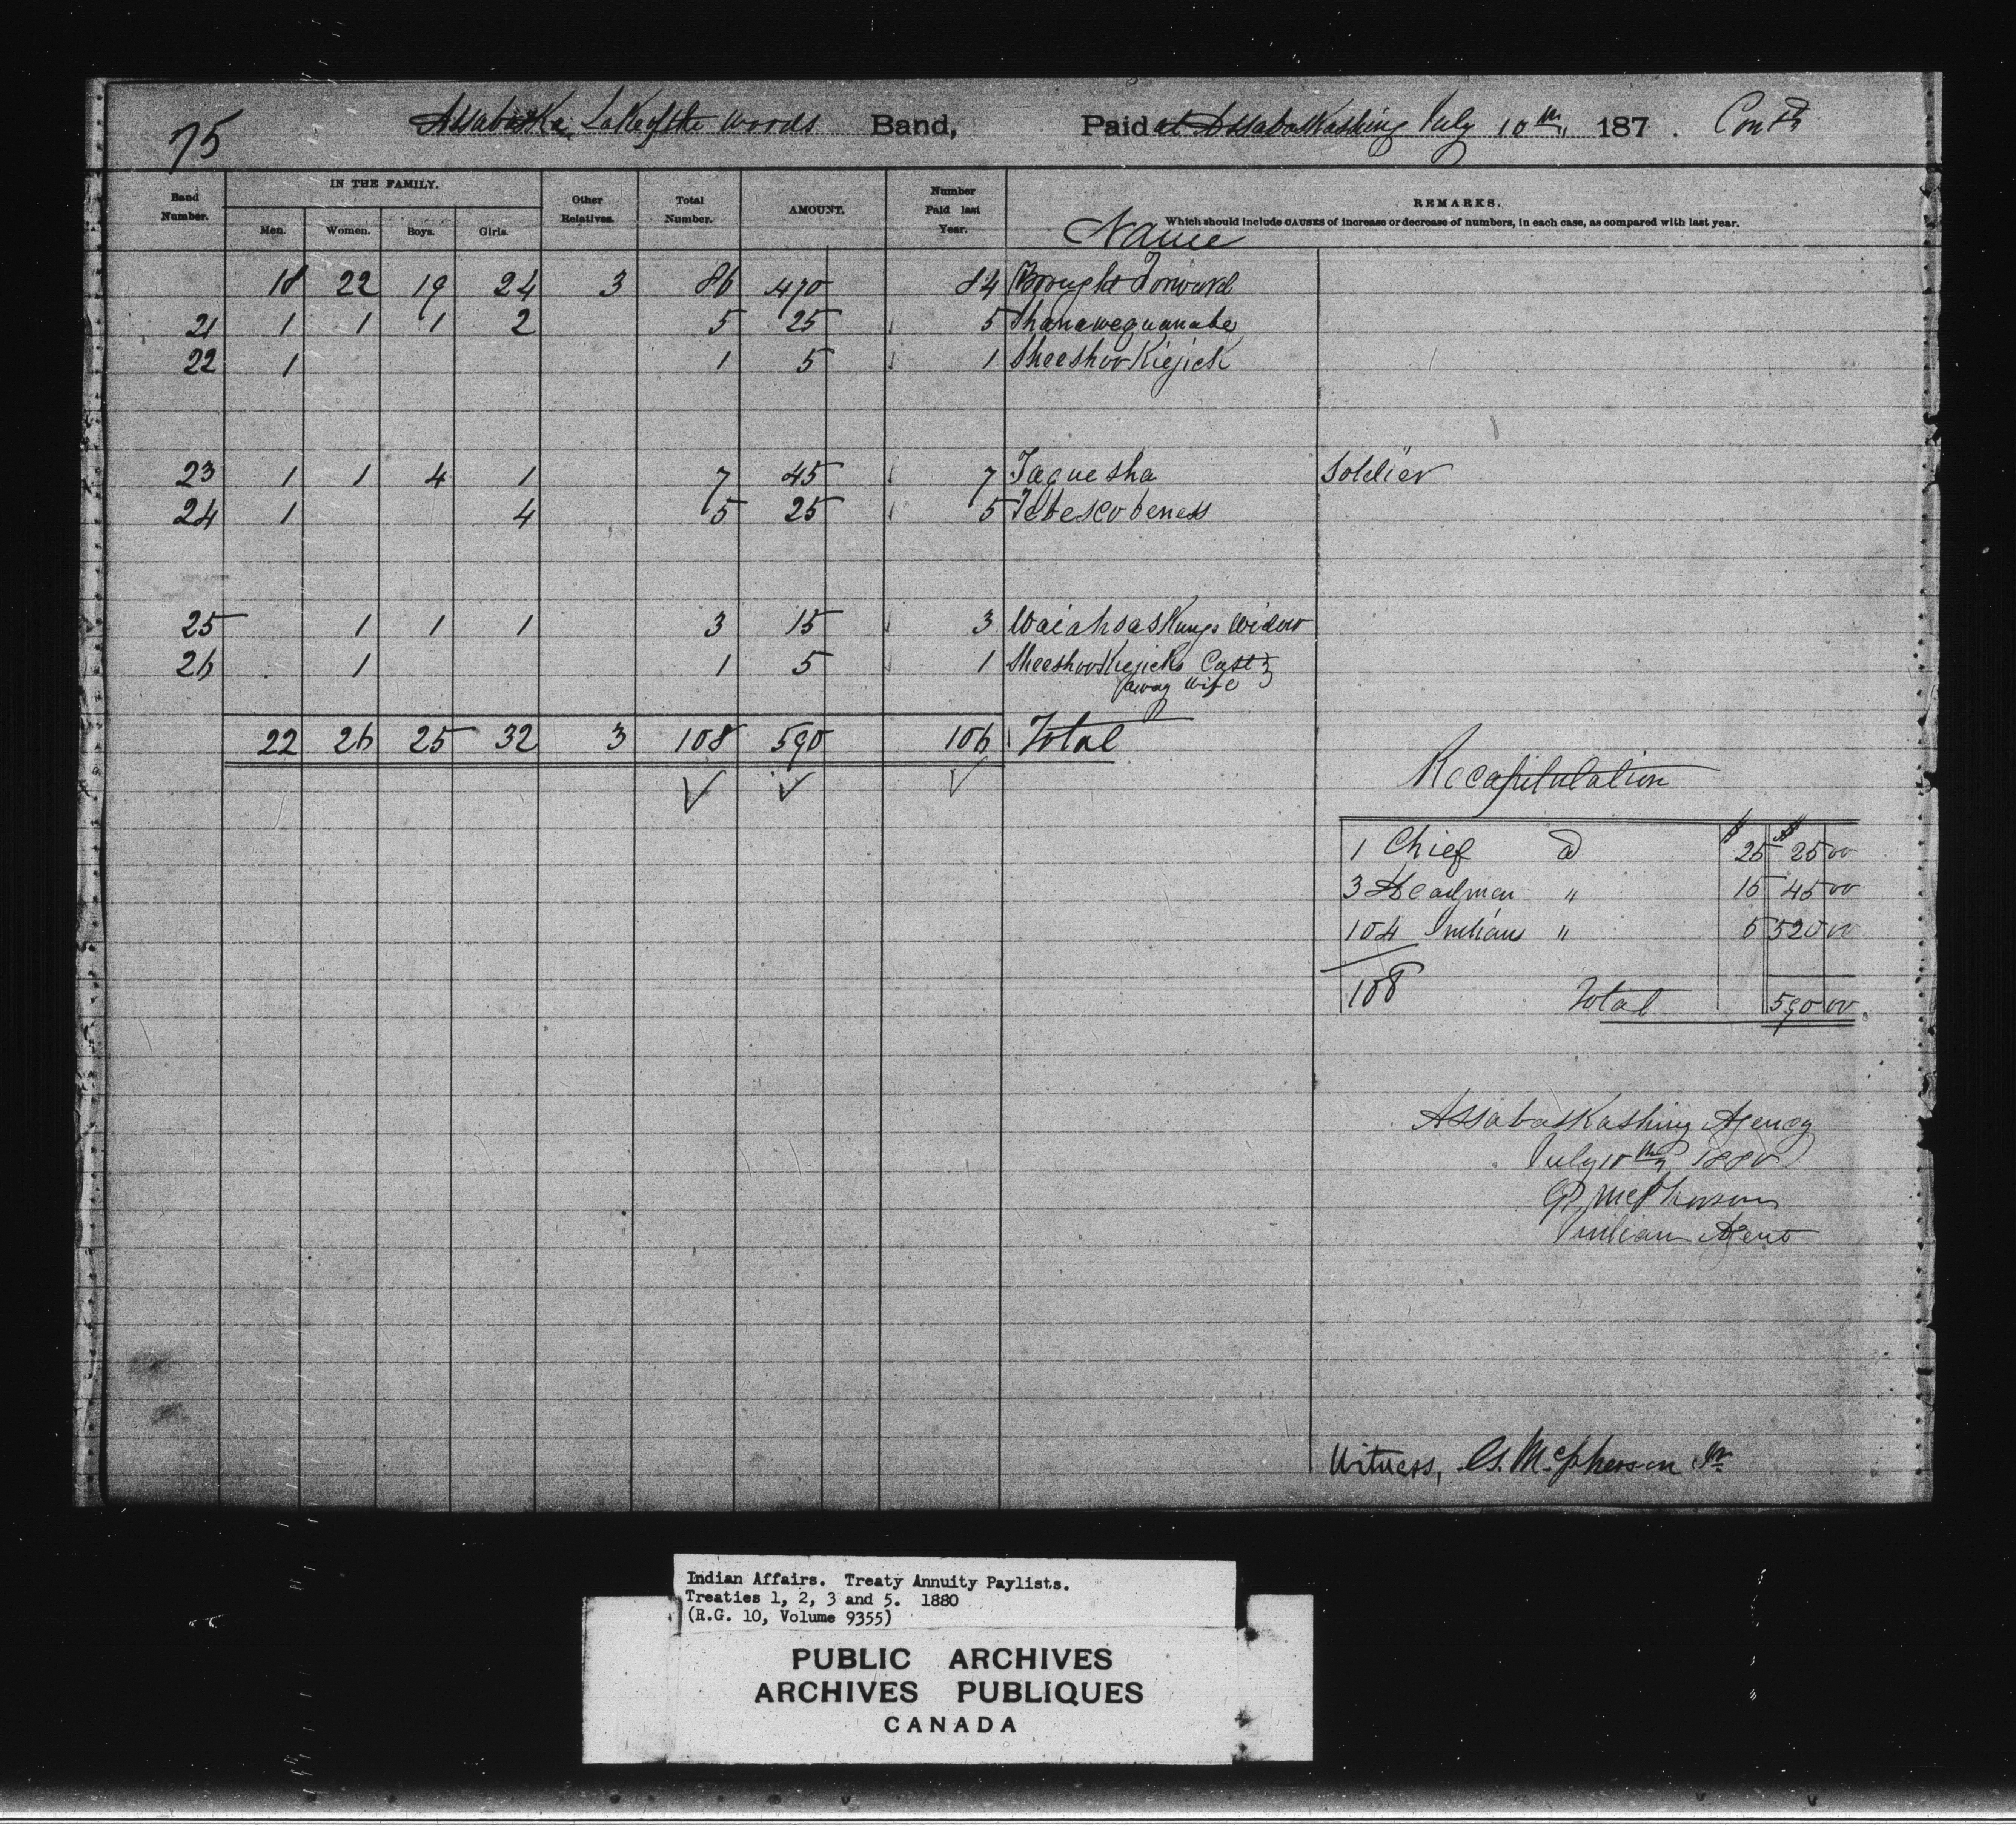 75 Assabaska, Lake of the Woods Band, Paid at Assabaskashing July 10th, 187 . Contd
Band Number. IN THE FAMILY. Men. Women. Boys. Girls. Other Relatives. Total Number. AMOUNT. Number Paid last Year. Name REMARKS.
Which should include CAUSES of increase or decrease of numbers, in each case, as compared with last year.
18 22 19 24 3 86 470 84 Brought Forward
21 1 1 1 2 5 25 5 Shanawequanabe
22 1 1 5 1 Sheeshoo Kiejick
23 1 1 4 1 7 45 7 Taquesha Soldier
24 1 4 5 25 5 Tebescobeness
25 1 1 1 3 15 3 Waiahsaskungs Widow
26 1 1 5 1 SheeshooKiejicks Cast
away wife
22 26 25 32 3 108 590 106 Total
Recapitulation
$ $
1 Chief @ 25 25 00
3 Headmen " 15 45 00
104 Indians " 5 520 00
108 Total 590 00
Assabaskashing Agency
July 10th, 1880
G. McPherson
Indian Agent
Witness, G. McPherson Jr
Indian Affairs. Treaty Annuity Paylists.
Treaties 1, 2, 3 and 5. 1880
(R.G. 10, Volume 9355)
PUBLIC ARCHIVES
ARCHIVES PUBLIQUES
CANADA